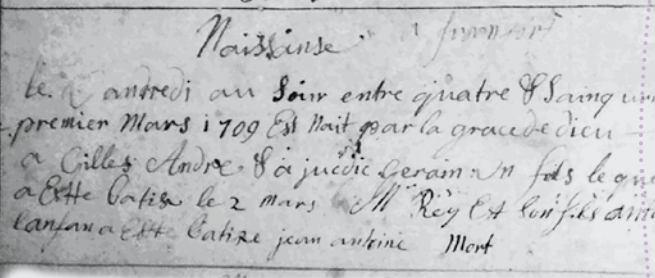 Naissanse a
le Vandredi au Soir entre quatre & Sainq
premier Mars 1709 Est Nait par la grace de dieu
a Gilles Andre & a Gerain un fils le
a Este batise le 2 mars Mr Rey Et son fils
lanfan a Este batize jean antoine Mort